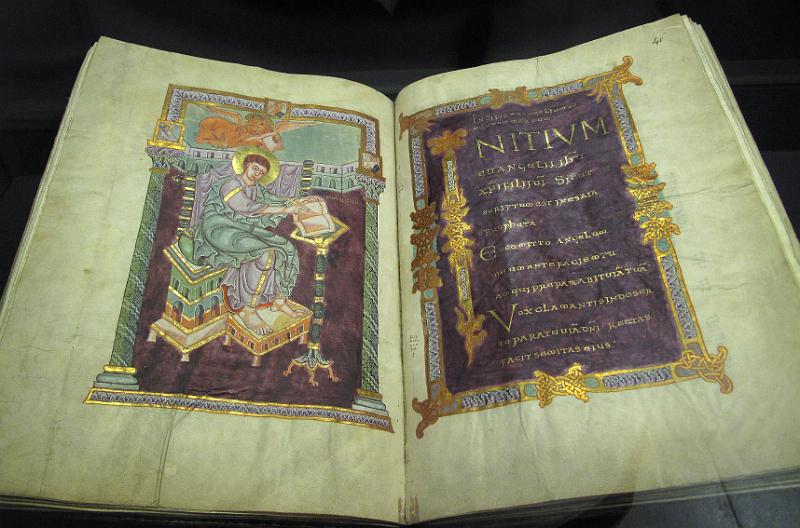 46
NITIVM
EUANGELII IHU
XPI FILII DI SICUT
SCRIPTUM EST IN ESAIA
PROPHETA
ECCE MITTO ANGELUM
MEUM ANTE FACIEM TU
AM QUI PREPARABIT UIĀ TUĀ
VOX CLAMANTIS IN DESER
TO PARATE UIĀ DNI RECTAS
FACITE SEMITAS EIUS